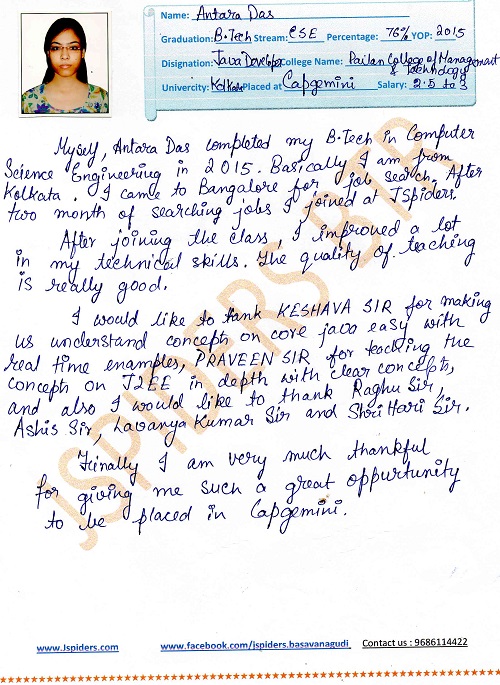 Name: Antara Das
Graduation: B.Tech Stream: CSE Percentage: 76% YOP: 2015
Disignation: Java Developer College Name: Pailan College of Management & Technology
Univercity: Kolkata Placed at Capgemini Salary: 2.5 to 3
Myself, Antara Das completed my B.Tech in Computer
Science Engineering in 2015. Basically I am from
Kolkata. I came to Bangalore for job search. After
two month of searching jobs I joined at JSpiders.
After joining the class, I improved a lot
in my technical skills. The quality of teaching
is really good.
I would like to tank KESHAVA SIR for making
us understand concepts on core java easy with
real time enamples, PRAVEEN SIR for teaching the
concepts on J2EE in depth with clear concepts,
and also I would like to thank Raghu Sir,
Ashis Sir, Lavanya Kumar Sir and Shri Hari Sir.
Finally I am very much thankful
for giving me such a great oppurtunity
to be placed in Capgemini.
JSPIDERS BTR
www.Jspiders.com www.facebook.com/jspiders.basavanagudi Contact us : 9686114422